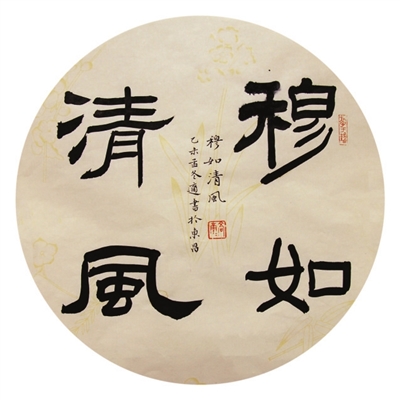 穆如
清風
穆如清風
乙未孟冬適書於東昌